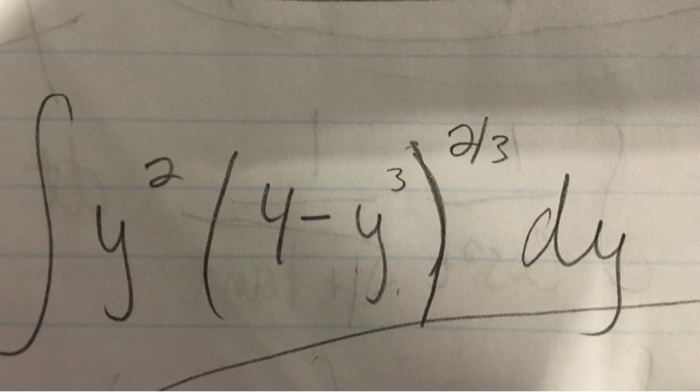 ∫ y² (4 - y³)^{2/3} dy